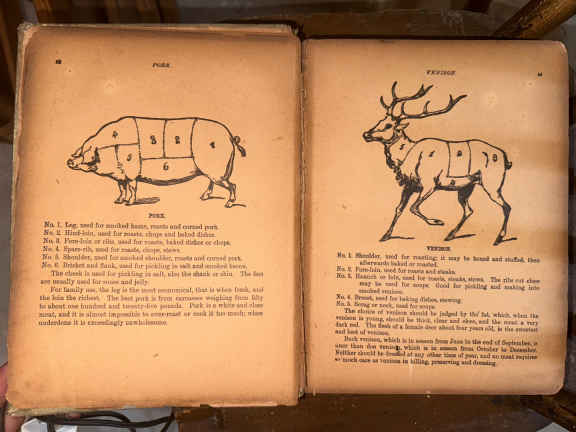 PORK.
4
3
2
1
5
6
PORK.
No. 1. Leg, used for smoked hams, roasts and corned pork.
No. 2. Hind-loin, used for roasts, chops and baked dishes.
No. 3. Fore-loin or ribs, used for roasts, baked dishes or chops.
No. 4. Spare-rib, used for roasts, chops, stews.
No. 5. Shoulder, used for smoked shoulder, roasts and corned pork.
No. 6. Brisket and flank, used for pickling in salt and smoked bacon.
The cheek is used for pickling in salt, also the shank or shin. The feet
are usually used for souse and jelly.
For family use, the leg is the most economical, that is when fresh, and
the loin the richest. The best pork is from carcasses weighing from fifty
to about one hundred and twenty-five pounds. Pork is a white and close
meat, and it is almost impossible to over-roast or cook it too much; when
underdone it is exceedingly unwholesome.
VENISON.
5
1
2
3
VENISON.
No. 1. Shoulder, used for roasting; it may be boned and stuffed, then
afterwards baked or roasted.
No. 2. Fore-loin, used for roasts and steaks.
No. 3. Haunch or loin, used for roasts, steaks, stews. The ribs cut close
may be used for soups. Good for pickling and making into
smoked venison.
No. 4. Breast, used for baking dishes, stewing.
No. 5. Scrag or neck, used for soups.
The choice of venison should be judged by the fat, which, when the
venison is young, should be thick, clear and close, and the meat a very
dark red. The flesh of a female deer about four years old, is the sweetest
and best of venison.
Buck venison, which is in season from June to the end of September, is
finer than doe venison, which is in season from October to December.
Neither should be dressed at any other time of year, and no meat requires
so much care as venison in killing, preserving and dressing.